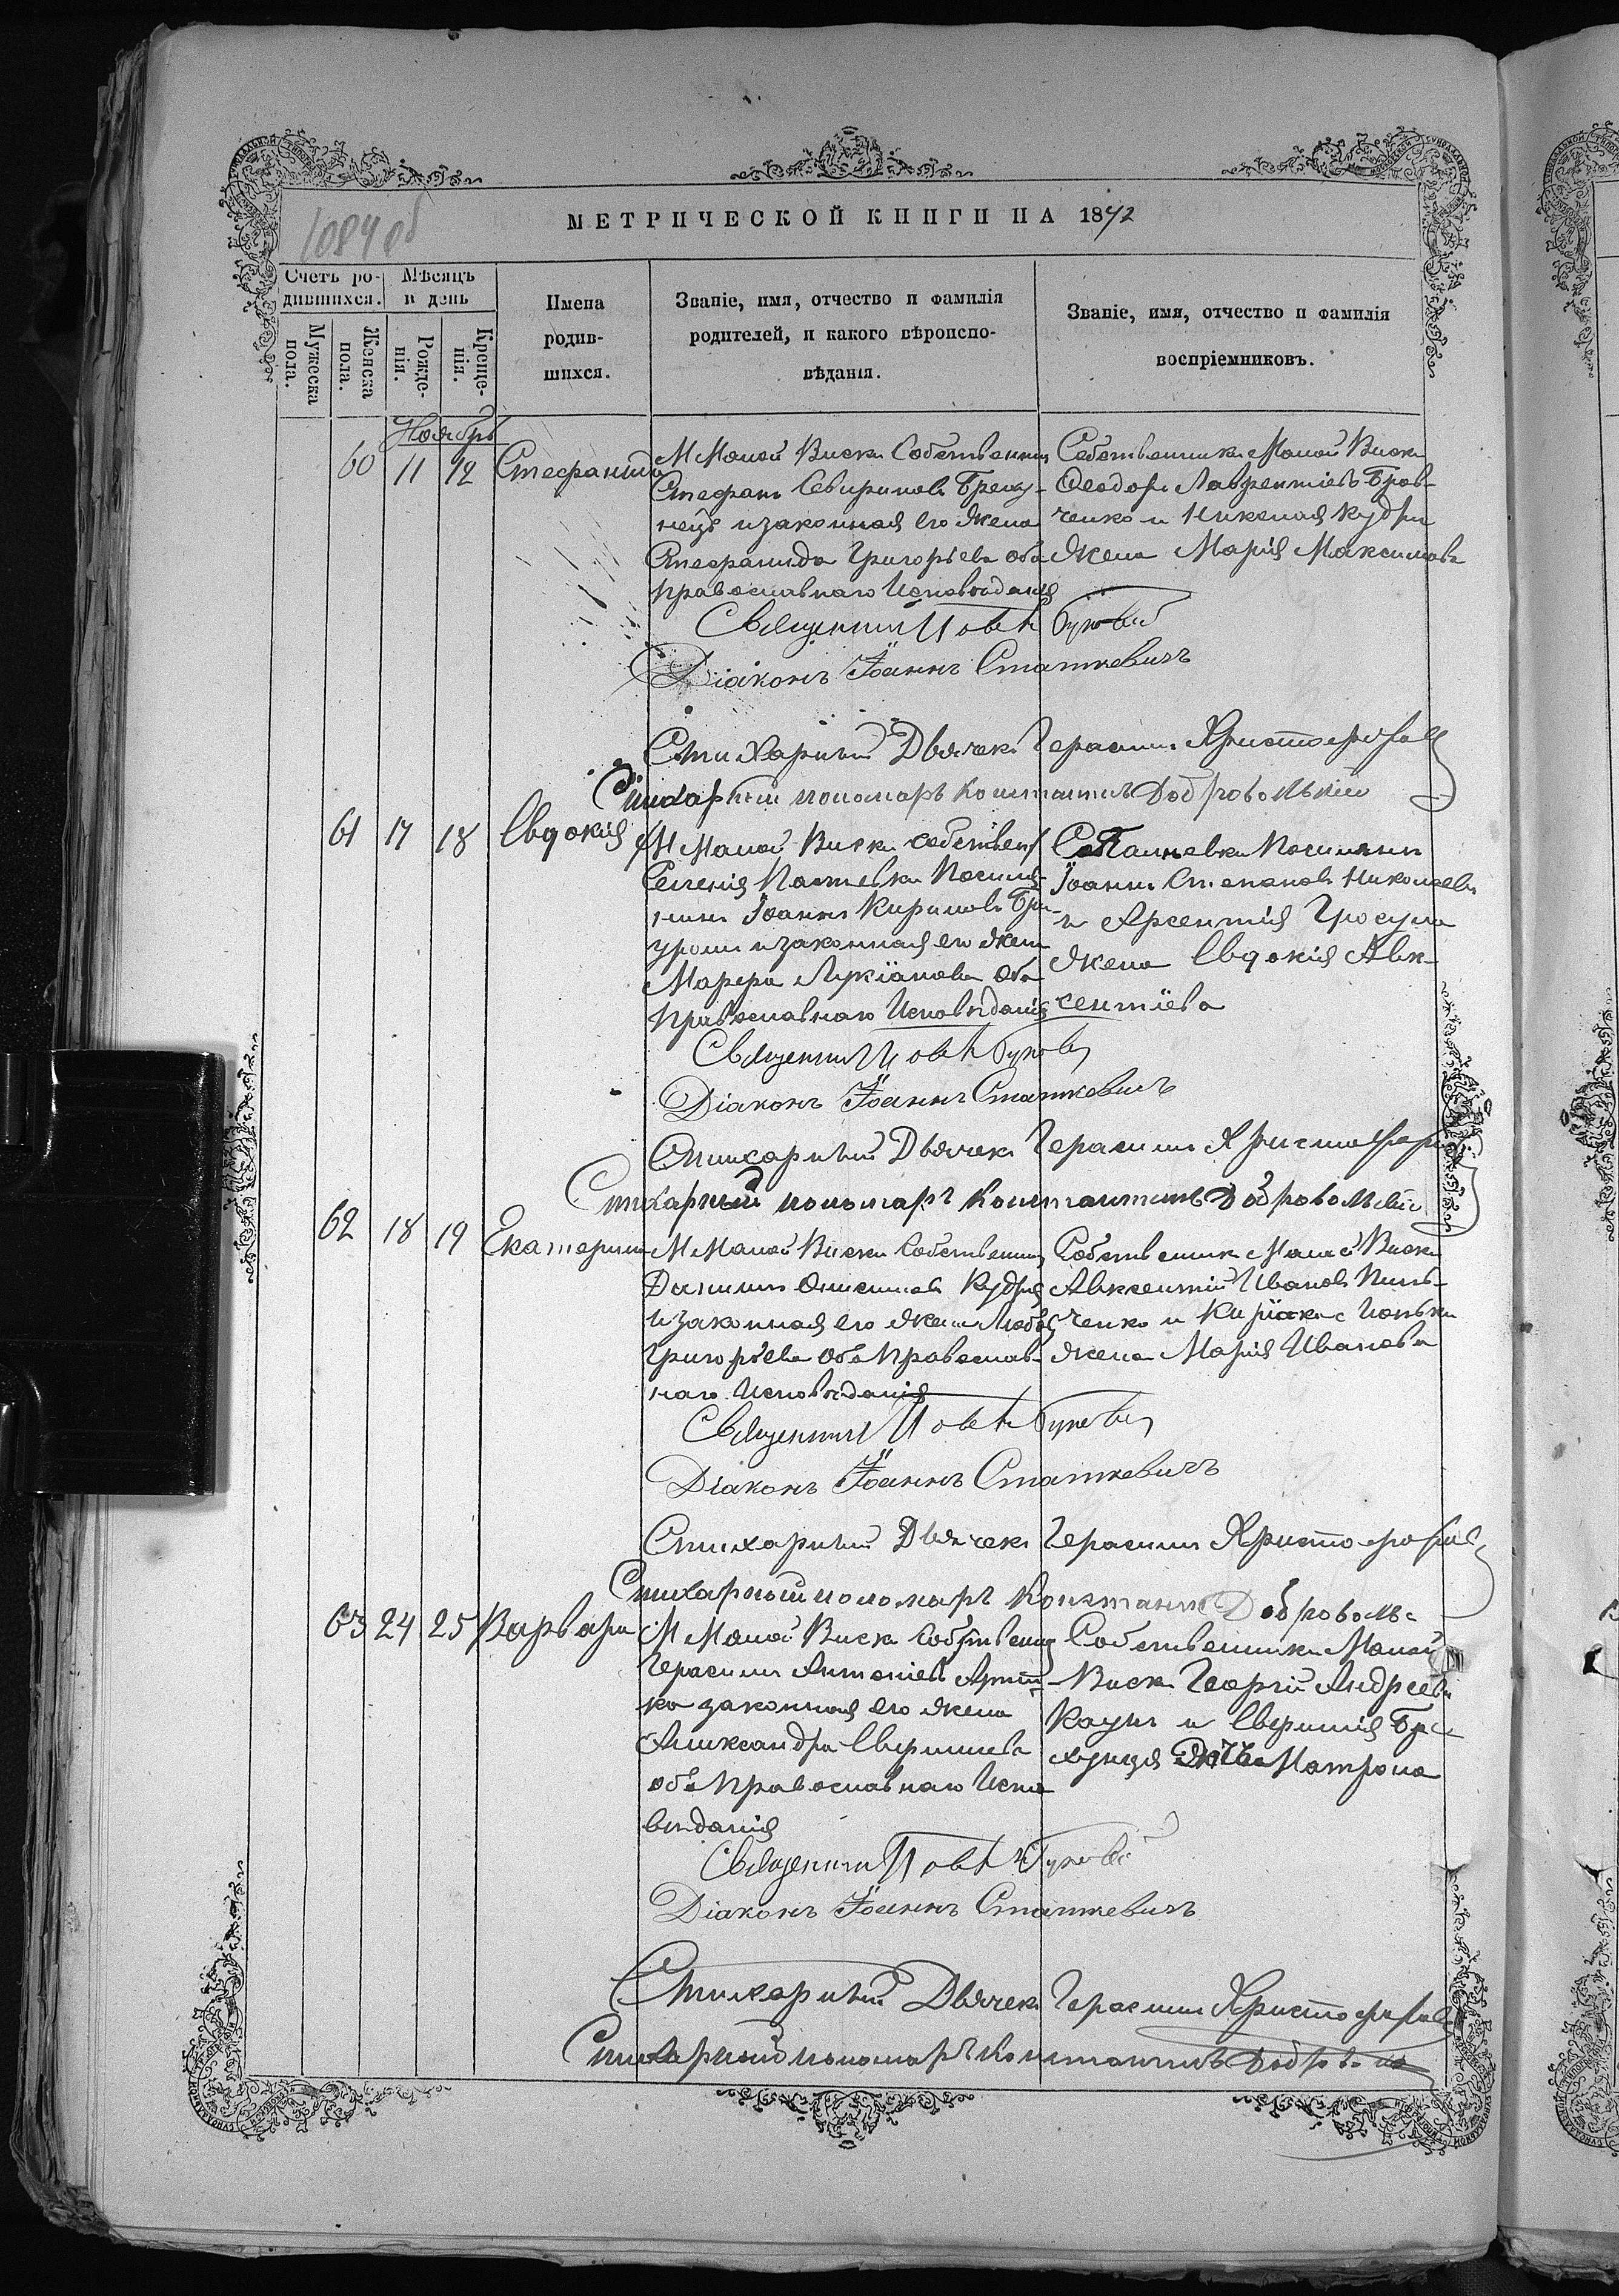 1084 об
МЕТРИЧЕСКОЙ КНИГИ НА 1872
Счетъ ро-
дившихся.
Мѣсяцъ
и день
Мужеска
пола.
Женска
пола.
Рожде-
нія.
Креще-
нія.
Имена
родив-
шихся.
Званіе, имя, отчество и фамилія
родителей, и какого вѣроиспо-
вѣданія.
Званіе, имя, отчество и фамилія
воспріемниковъ.
Ноябрь
60 11 12 Стефанида
М Малой Виски Собственникъ
Стефанъ Севириновъ Бреху-
нецъ и законная его жена
Стефанида Григорьева оба
православнаго Исповѣданія
Собственникъ Малой Виски
Ѳеодоръ Лаврентіевъ Бров-
ченко и Николая Кудри
жена Марія Максимова
Священникъ
Діаконъ Іоаннъ Статкевичъ
Стихарный Дьячекъ Герасимъ Христофоровъ
Стихарный пономарь Константинъ Добровольскій
61 17 18 Евдокія
М Малой Виски собствен
Селенія Поселя-
нинъ Іоаннъ Кириловъ
и законная его жена
Марфа Лукіанова оба
православнаго Исповѣданія
Поселянинъ
Іоаннъ Степановъ Николаевъ
и Арсентія Гросула
жена Евдокія Авк-
сентіева
Священникъ
Діаконъ Іоаннъ Статкевичъ
Стихарный Дьячекъ Герасимъ Христофоровъ
Стихарный пономарь Константинъ Добровольскій
62 18 19 Екатерина
М Малой Виски Собственникъ
Даніилъ Онисимовъ Кудря
и законная его жена Любовь
Григорьева оба Православ-
наго Исповѣданія
Собственникъ Малой Виски
Авксентій Ивановъ
ченко и
жена Марія Иванова
Священникъ
Діаконъ Іоаннъ Статкевичъ
Стихарный Дьячекъ Герасимъ Христофоровъ
Стихарный пономарь Константинъ Доброволь
63 24 25 Варвара
М Малой Виски Собственникъ
Герасимъ Антоніевъ
законная его жена
Александра Евфиміева
оба Православнаго Испо
вѣданія
Собственникъ Малой
Виски Георгій Андреевъ
Каунъ и Бре
хунця дочь Матрона
Священникъ
Діаконъ Іоаннъ Статкевичъ
Стихарный Дьячекъ Герасимъ Христофоровъ
Стихарный пономарь Константинъ Доброволь